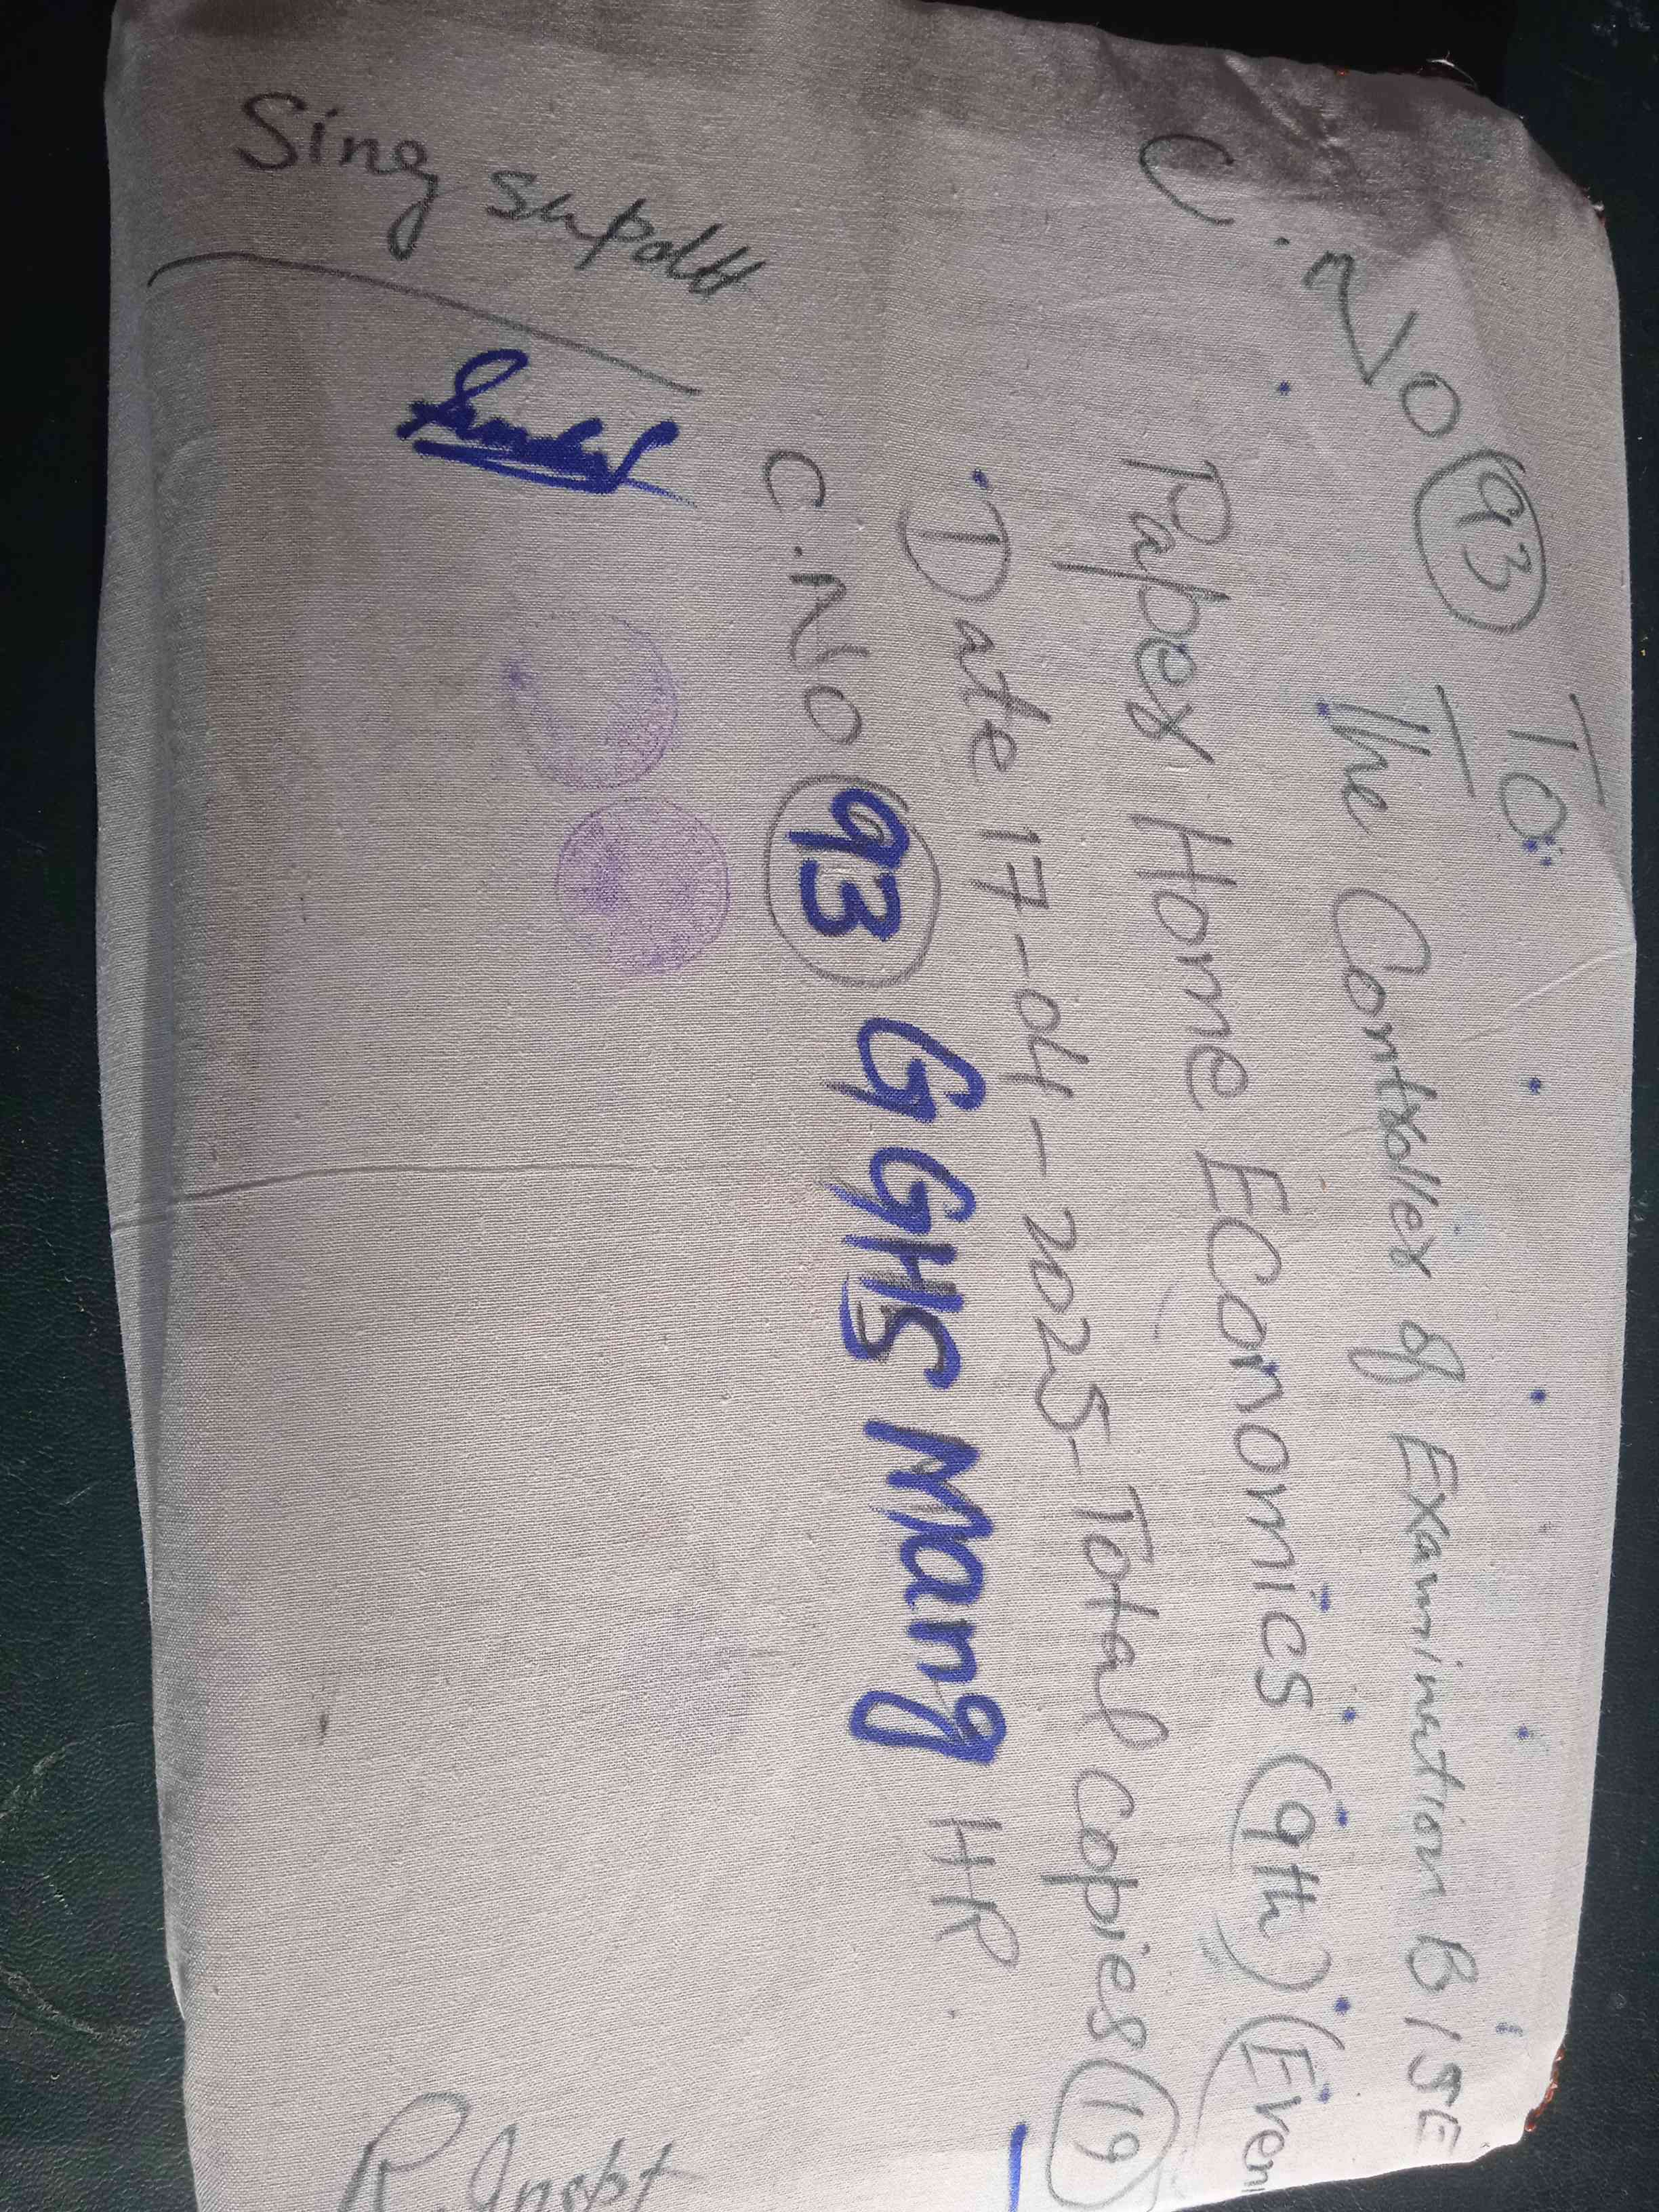 C.NO 93 To:
The Controller of Examination BISE
Paper Home Economics (9th) (Even
Date 17-04-2025 Total Copies 19
C.NO 93 GGHS Mang HR
Sing supdtt
R.Inspt